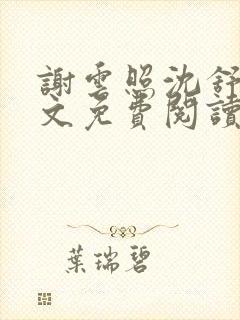 謝雲照沈舒
文免費閱讀
葉瑞碧